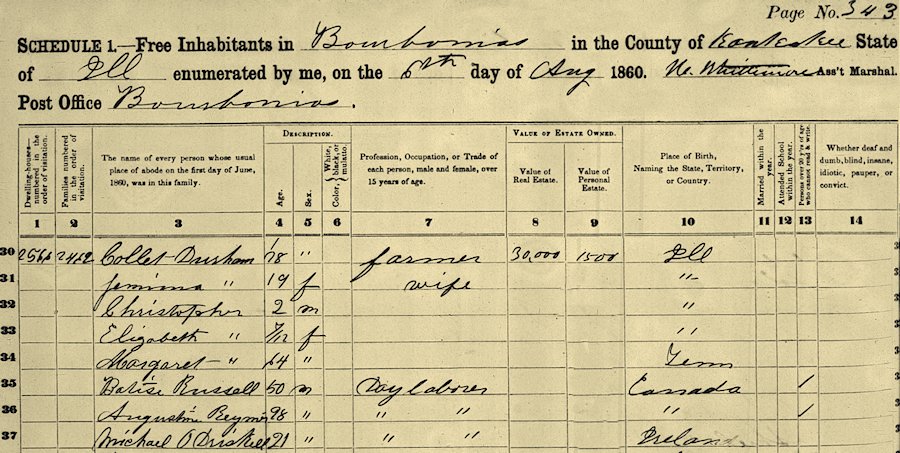 Page No. 343
SCHEDULE 1.—Free Inhabitants in Bourbonias in the County of Kankakee State
of Ill enumerated by me, on the 6th day of Aug 1860. Whittemore Ass't Marshal.
Post Office Bourbonias.
Dwelling-houses—numbered in the order of visitation. Families numbered in the order of visitation. The name of every person whose usual place of abode on the first day of June, 1860, was in this family. DESCRIPTION. Age. Sex. Color, { White, black, or mulatto. } Profession, Occupation, or Trade of each person, male and female, over 15 years of age. VALUE OF ESTATE OWNED. Value of Real Estate. Value of Personal Estate. Place of Birth, Naming the State, Territory, or Country. Married within the year. Attended School within the year. Persons over 20 y'rs of age who cannot read & write. Whether deaf and dumb, blind, insane, idiotic, pauper, or convict.
1 2 3 4 5 6 7 8 9 10 11 12 13 14
30 2462 Collet Durham " farmer 30,000 1500 Ill 30
31 Jemima " 19 f wife " 31
32 Christopher 2 m " 32
33 Elizabeth " 7/12 f " 33
34 Margaret " 64 " Tenn 34
35 Batise Russell 50 m Day laborer Canada / 35
36 Augustine " " " " / 36
37 Michael O Driskell 21 " " " Ireland 37